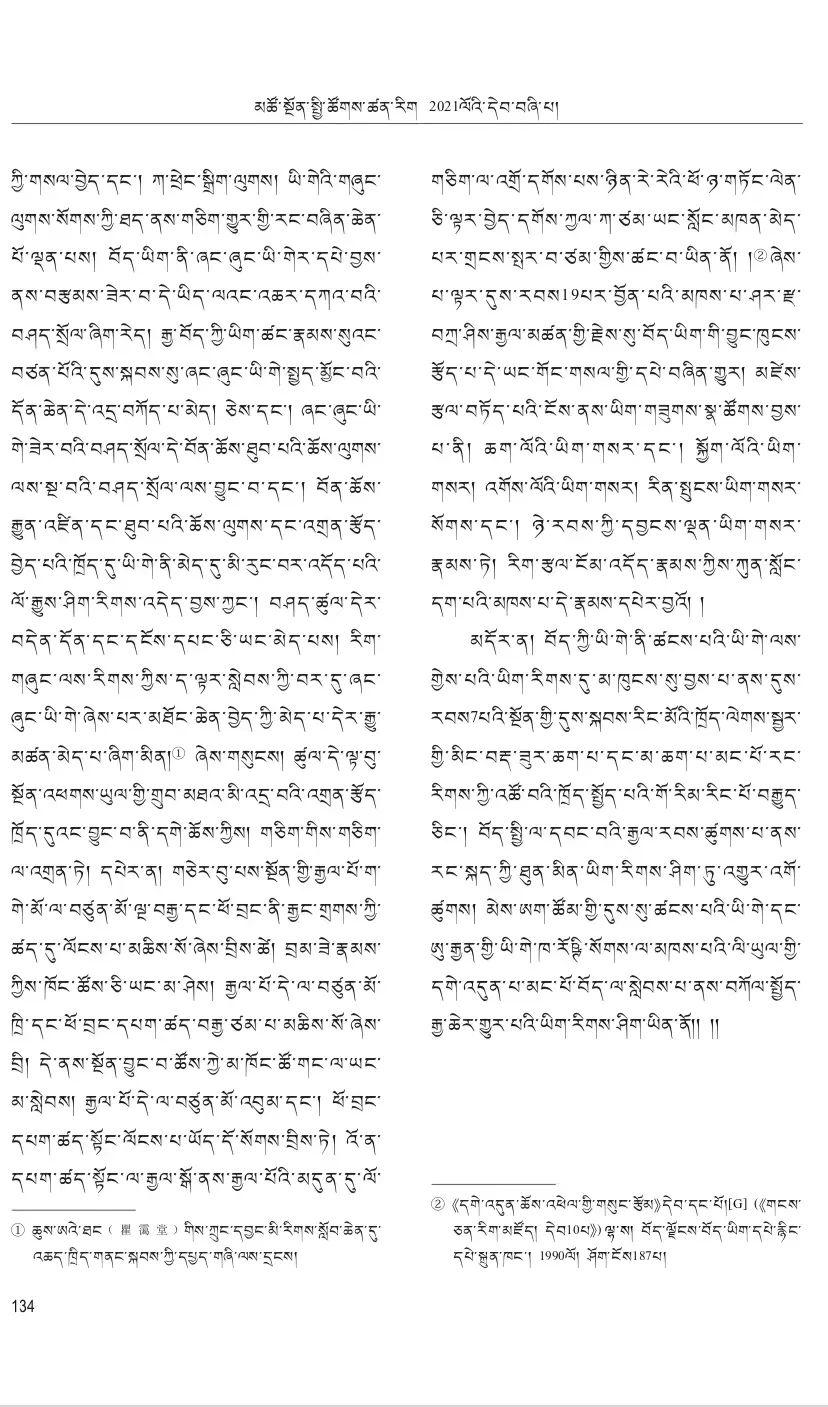 མཚོ་སྔོན་སྤྱི་ཚོགས་ཚན་རིག 2021ལོའི་དེབ་བཞི་པ།
ཀྱི་གསལ་བྱེད་དང་། ཀ་ཕྲེང་སྒྲིག་ལུགས། ཡི་གེའི་གཞུང་
ལུགས་སོགས་ཀྱི་ཐད་ནས་གཅིག་གྱུར་གྱི་རང་བཞིན་ཆེན་
པོ་ལྡན་པས། བོད་ཡིག་ནི་ཞང་ཞུང་ཡི་གེར་དཔེ་བྱས་
ནས་བརྩམས་ཟེར་བ་དེ་ཡིད་ལའང་འཆར་དཀའ་བའི་
བཤད་སྲོལ་ཞིག་རེད། རྒྱ་བོད་ཀྱི་ཡིག་ཚང་རྣམས་སུའང་
བཙན་པོའི་དུས་སྐབས་སུ་ཞང་ཞུང་ཡི་གེ་སྤྱད་མྱོང་བའི་
དོན་ཆེན་དེ་འདྲ་བཀོད་པ་མེད། ཅེས་དང་། ཞང་ཞུང་ཡི་
གེ་ཟེར་བའི་བཤད་སྲོལ་དེ་བོན་ཆོས་ཐུབ་པའི་ཆོས་ལུགས་
ལས་སྔ་བའི་བཤད་སྲོལ་ལས་བྱུང་བ་དང་། བོན་ཆོས་
རྒྱུན་འཛིན་དང་ཐུབ་པའི་ཆོས་ལུགས་དང་འགྲན་རྩོད་
བྱེད་པའི་ཁྲོད་དུ་ཡི་གེ་ནི་མེད་དུ་མི་རུང་བར་འདོད་པའི་
ལོ་རྒྱུས་ཤིག་རིགས་འདེད་བྱས་ཀྱང་། བཤད་ཚུལ་དེར་
བདེན་དོན་དང་དངོས་དཔང་ཅི་ཡང་མེད་པས། རིག་
གཞུང་ལས་རིགས་ཀྱིས་ད་ལྟར་སླེབས་ཀྱི་བར་དུ་ཞང་
ཞུང་ཡི་གེ་ཞེས་པར་མཐོང་ཆེན་བྱེད་ཀྱི་མེད་པ་དེར་རྒྱུ་
མཚན་མེད་པ་ཞིག་མིན།① ཞེས་གསུངས། ཚུལ་དེ་ལྟ་བུ་
སྔོན་འཕགས་ཡུལ་གྱི་གྲུབ་མཐའ་མི་འདྲ་བའི་འགྲན་རྩོད་
ཁྲོད་དུའང་བྱུང་བ་ནི་དགེ་ཆོས་ཀྱིས། གཅིག་གིས་གཅིག་
ལ་འགྲན་ཏེ། དཔེར་ན། གཅེར་བུ་པས་སྔོན་གྱི་རྒྱལ་པོ་ག་
གེ་མོ་ལ་བཙུན་མོ་ལྔ་བརྒྱ་དང་ཕོ་བྲང་ནི་རྒྱང་གྲགས་ཀྱི་
ཚད་དུ་ལོངས་པ་མཆིས་སོ་ཞེས་བྲིས་ཚེ། བྲམ་ཟེ་རྣམས་
ཀྱིས་ཁོང་ཚོས་ཅི་ཡང་མ་ཤེས། རྒྱལ་པོ་དེ་ལ་བཙུན་མོ་
ཁྲི་དང་ཕོ་བྲང་དཔག་ཚད་བརྒྱ་ཙམ་པ་མཆིས་སོ་ཞེས་
བྲི། དེ་ནས་སྔོན་བྱུང་བ་ཚོས་ཀྱེ་མ་ཁོང་ཚོ་གང་ལ་ཡང་
མ་སླེབས། རྒྱལ་པོ་དེ་ལ་བཙུན་མོ་འབུམ་དང་། ཕོ་བྲང་
དཔག་ཚད་སྟོང་ལོངས་པ་ཡོད་དོ་སོགས་བྲིས་ཏེ། འོ་ན་
དཔག་ཚད་སྟོང་ལ་རྒྱལ་སྒོ་ནས་རྒྱལ་པོའི་མདུན་དུ་ལོ་
① ཆུས་ཨའེ་ཐང་（瞿霭堂）གིས་ཀྲུང་དབྱང་མི་རིགས་སློབ་ཆེན་དུ་
འཆད་ཁྲིད་གནང་སྐབས་ཀྱི་དཔྱད་གཞི་ལས་དྲངས།
གཅིག་ལ་འགྲོ་དགོས་པས་ཉིན་རེ་རེའི་ཕོ་ཉ་གཏོང་ལེན་
ཅི་ལྟར་བྱེད་དགོས་ཀྱལ་ཀ་ཙམ་ཡང་སློང་མཁན་མེད་
པར་གྲངས་སྤར་བ་ཙམ་གྱིས་ཚང་བ་ཡིན་ནོ། །②ཞེས་
པ་ལྟར་དུས་རབས19པར་བྱོན་པའི་མཁས་པ་ཤར་རྫ་
བཀྲ་ཤིས་རྒྱལ་མཚན་གྱི་རྗེས་སུ་བོད་ཡིག་གི་བྱུང་ཁུངས་
རྩོད་པ་དེ་ཡང་གོང་གསལ་གྱི་དཔེ་བཞིན་གྱུར། མཛེས་
རྩལ་བཏོད་པའི་ངོས་ནས་ཡིག་གཟུགས་སྣ་ཚོགས་བྱས་
པ་ནི། ཆག་ལོའི་ཡིག་གསར་དང་། སྐྱོག་ལོའི་ཡིག་
གསར། འགོས་ལོའི་ཡིག་གསར། རིན་སྤུངས་ཡིག་གསར་
སོགས་དང་། ཉེ་རབས་ཀྱི་དབྱངས་ལྡན་ཡིག་གསར་
རྣམས་ཏེ། རིག་རྩལ་ངོམ་འདོད་རྣམས་ཀྱིས་ཀུན་སློང་
དག་པའི་མཁས་པ་དེ་རྣམས་དཔེར་བྱའོ། །
མདོར་ན། བོད་ཀྱི་ཡི་གེ་ནི་ཚངས་པའི་ཡི་གེ་ལས་
གྱེས་པའི་ཡིག་རིགས་དུ་མ་ཁུངས་སུ་བྱས་པ་ནས་དུས་
རབས7པའི་སྔོན་གྱི་དུས་སྐབས་རིང་མོའི་ཁྲོད་ལེགས་སྦྱར་
གྱི་མིང་བརྡ་ཟུར་ཆག་པ་དང་མ་ཆག་པ་མང་པོ་རང་
རིགས་ཀྱི་འཚོ་བའི་ཁྲོད་སྤྱོད་པའི་གོ་རིམ་རིང་པོ་བརྒྱུད་
ཅིང་། བོད་སྤྱི་ལ་དབང་བའི་རྒྱལ་རབས་ཚུགས་པ་ནས་
རང་སྐད་ཀྱི་ཐུན་མིན་ཡིག་རིགས་ཤིག་ཏུ་འགྱུར་འགོ་
ཚུགས། མེས་ཨག་ཚོམ་གྱི་དུས་སུ་ཚངས་པའི་ཡི་གེ་དང་
ཨུ་རྒྱན་གྱི་ཡི་གེ་ཁ་རོཥྛི་སོགས་ལ་མཁས་པའི་ལི་ཡུལ་གྱི་
དགེ་འདུན་པ་མང་པོ་བོད་ལ་སླེབས་པ་ནས་བཀོལ་སྤྱོད་
རྒྱ་ཆེར་གྱུར་པའི་ཡིག་རིགས་ཤིག་ཡིན་ནོ།། །།
② 《དགེ་འདུན་ཆོས་འཕེལ་གྱི་གསུང་རྩོམ》དེབ་དང་པོ།[G] (《གངས་
ཅན་རིག་མཛོད། དེབ10པ》) ལྷ་ས། བོད་ལྗོངས་བོད་ཡིག་དཔེ་རྙིང་
དཔེ་སྐྲུན་ཁང་། 1990ལོ། ཤོག་ངོས187པ།
134